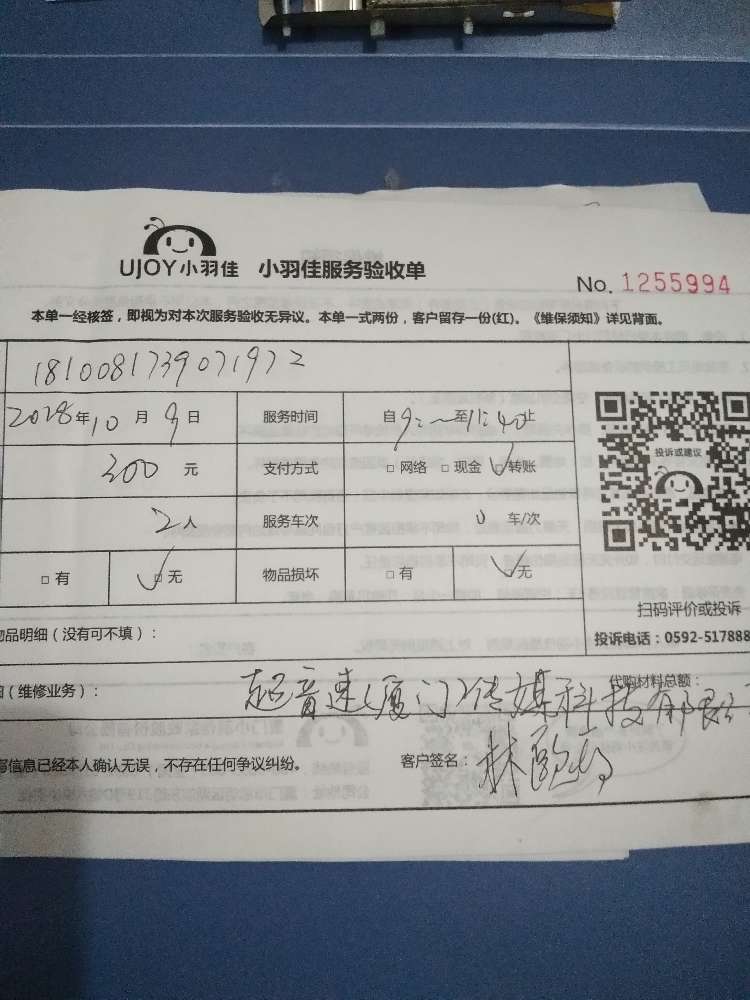 UJOY小羽佳 小羽佳服务验收单
No. 1255994
本单一经核签，即视为对本次服务验收无异议。本单一式两份，客户留存一份(红)。《维保须知》详见背面。
1810081739071972
2018年10月9日 服务时间 自9:~至11:40止
投诉或建议
200元 支付方式 □网络 □现金 □转账
2人 服务车次 0 车/次
□有 □无 物品损坏 □有 □无
扫码评价或投诉
品明细（没有可不填）：
投诉电话：0592-517888
（维修业务）： 代购材料总额：
超音速(厦门)传媒科技有限
信息已经本人确认无误，不存在任何争议纠纷。 客户签名：林